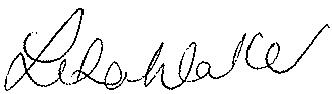 Lisa Walker